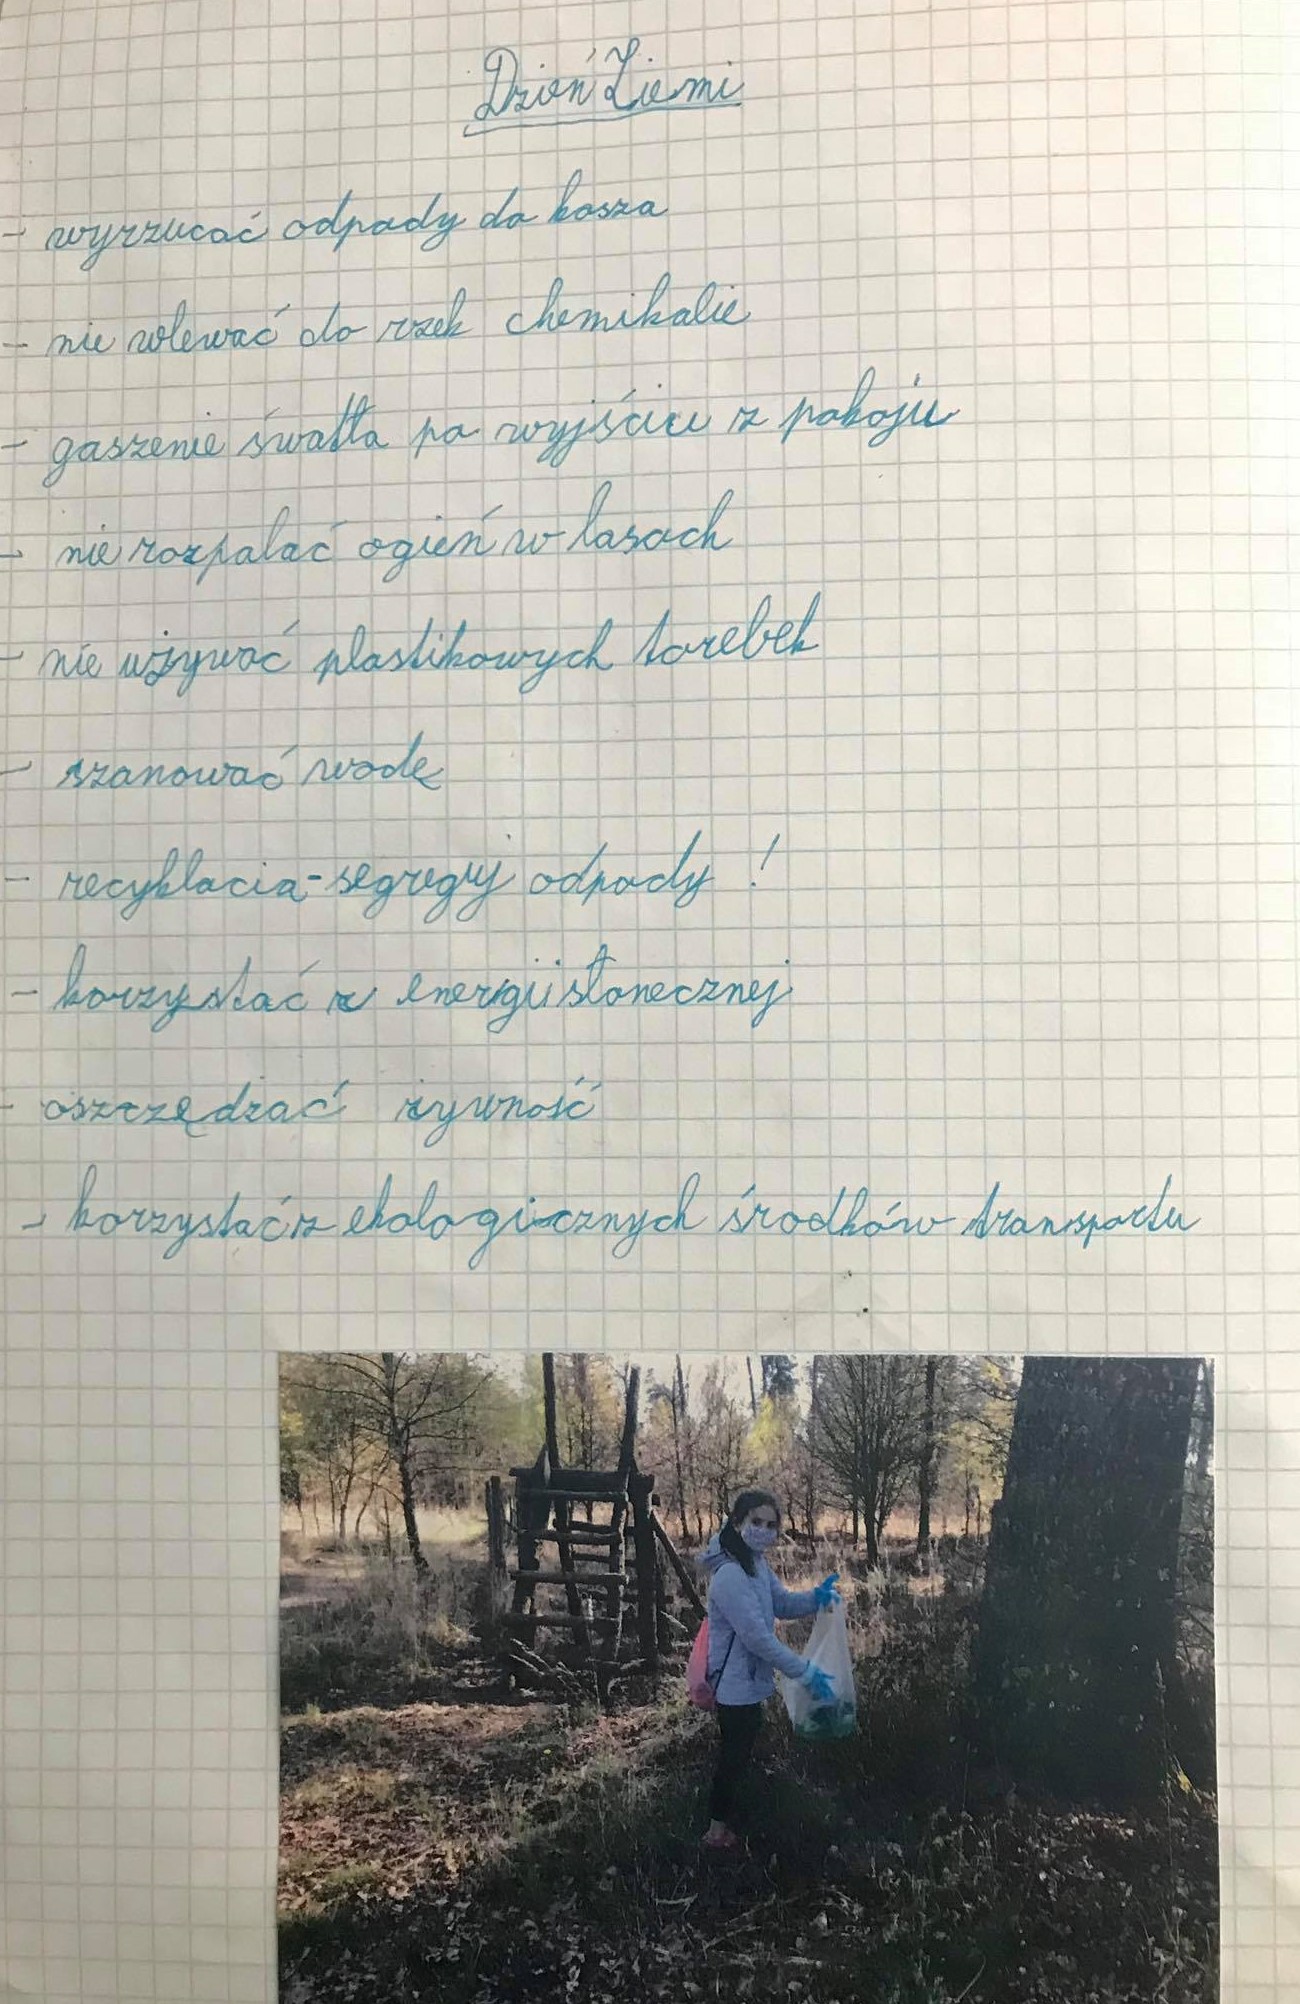 Dzień Ziemi
- wyrzucać odpady do kosza
- nie wlewać do rzek chemikalie
- gaszenie śwatła po wyjściu z pokoju
- nie rozpalać ogień w lasach
- nie używać plastikowych torebek
- szanować wodę
- recyklacia - segreguj odpady!
- korzystać z energii słonecznej
- oszczędzać żywność
- korzystać z ekologicznych środków transportu